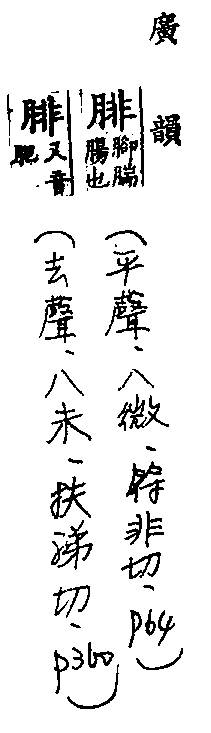 廣韻
腓 腳腨腸也 (平聲、八微、符非切、p64)
腓 又音肥 (去聲、八未、扶涕切、p360)